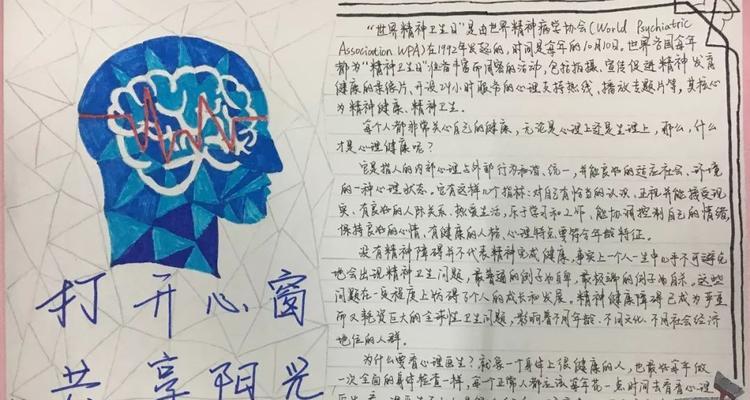 打开心窗
共享阳光
"世界精神卫生日"是由世界精神病学协会(World Psychiatric
Association WPA)在1992年发起的,时间是每年的10月10日。世界各国每年
都为"精神卫生日"准备丰富而周密的活动,包括拍摄、宣传促进精神发育
健康的录像片、开设24小时服务的心理支持热线、播放专题片等,其核心
为精神健康、精神卫生。
每个人都非常关心自己的健康,无论是心理上还是生理上,那么,什么
才是心理健康呢?
它是指人的内部心理与外部行为和谐、统一,并能良好的适应社会、环境
的一种心理状态。它有这样几个指标:对自己有恰当的认识、正视并能接受现
实、有良好的人际关系、热爱生活,乐于学习和工作、能协调控制自己的情绪,
保持良好的心情、有健康的人格、心理特点要符合年龄特征。
没有精神障碍并不代表精神完成健康,事实上一个人一生中几乎不可避免
地会出现精神卫生问题,最普通的例子为自卑,最极端的例子为自杀。这些
问题在一定程度上妨碍了个人的成长和发展。精神健康障碍已成为严重
而又耗资巨大的全球性卫生问题,影响着不同年龄、不同文化、不同社会经济
地位的人群。
为什么要看心理医生?就象一个身体上很健康的人,也最好每年做
一次全面的身体检查一样,每个正常人都应该每年花一点时间去看看心理